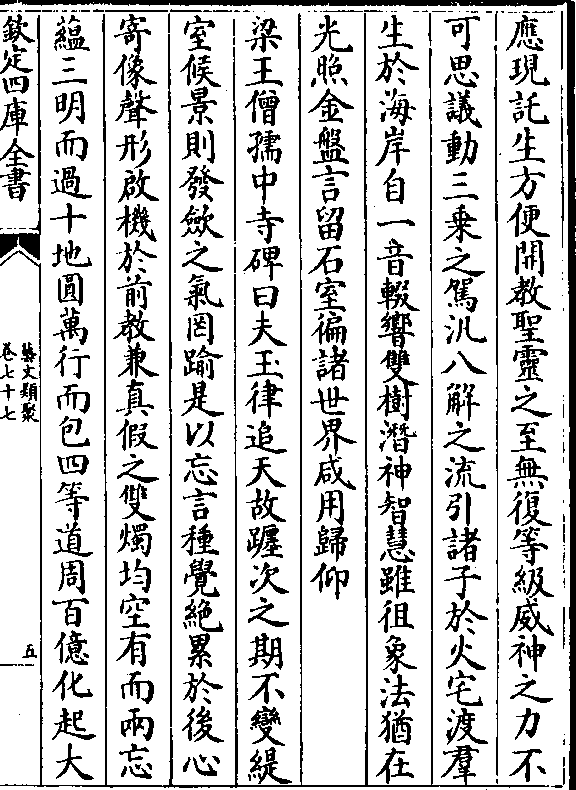 應現託生方便開教聖靈之至無復等級威神之力不
可思議動三乗之駕汎八解之流引諸子於火宅渡羣
生於海岸自一音輟響雙樹潛神智慧雖徂象法猶在
光照金盤言留石室徧諸世界咸用歸仰
梁王僧孺中寺碑曰夫玉律追天故躔次之期不變緹
室候景則發歛之氣罔踰是以忘言種覺絶累於後心
寄像聲形啟機於前教兼真假之雙燭均空有而兩忘
藴三明而過十地圓萬行而包四等道周百億化起大
欽定四庫全書
藝文類聚
卷七十七
五